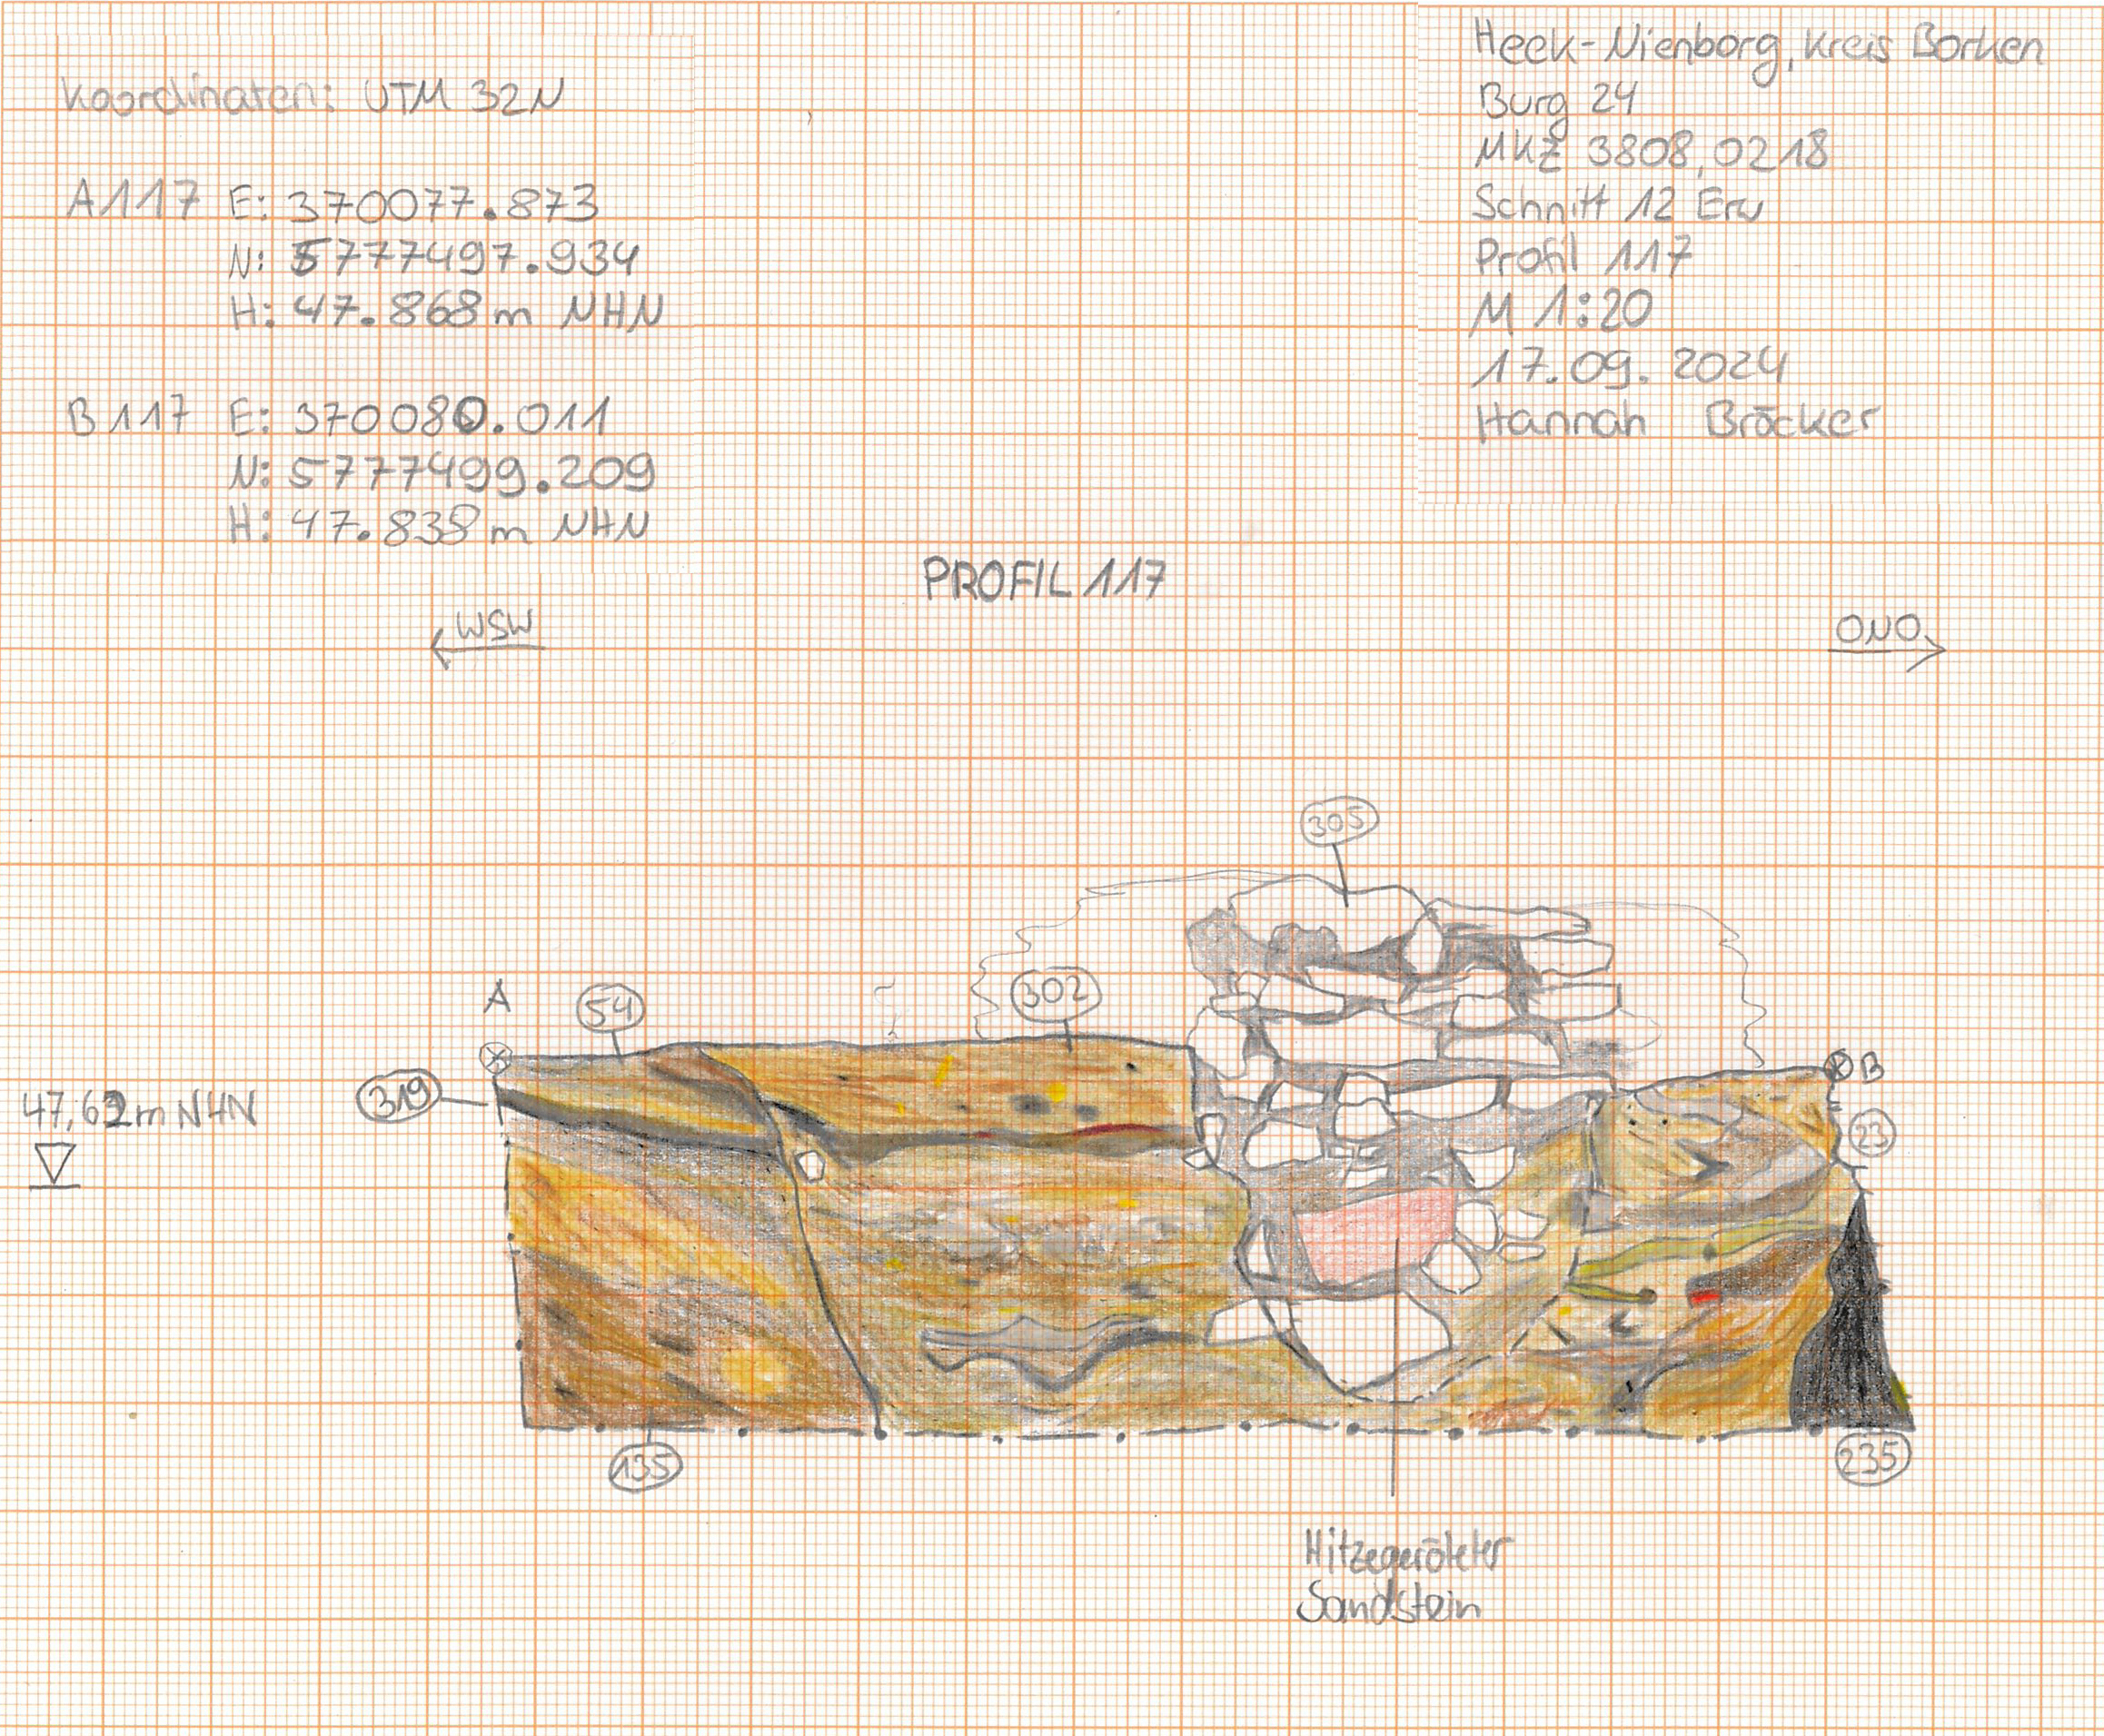 Koordinaten: UTM 32N
A117 E: 370077.873
N: 5777497.934
H: 47.868 m NHN
B117 E: 370080.011
N: 5777499.209
H: 47.838 m NHN
Heek-Nienborg, Kreis Borken
Burg 24
MKZ 3808,0218
Schnitt 12 Erw
Profil 117
M 1:20
17.09.2024
Hannah Bröcker
PROFIL 117
WSW
ONO
305
A
54
302
B
319
47,62m NHN
23
135
235
Hitzegeröteter
Sandstein